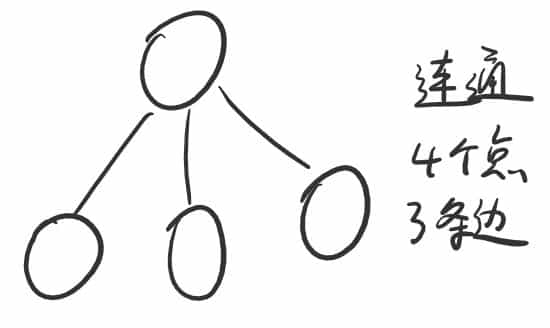 连通
4个点
3条边